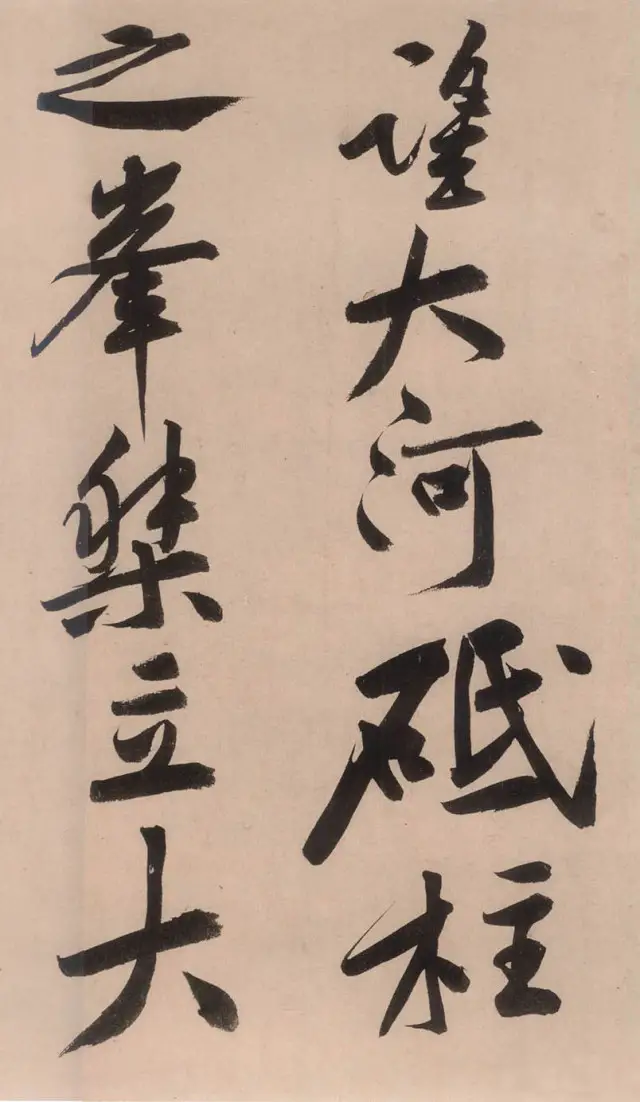 望大河砥柱
之峯桀立大